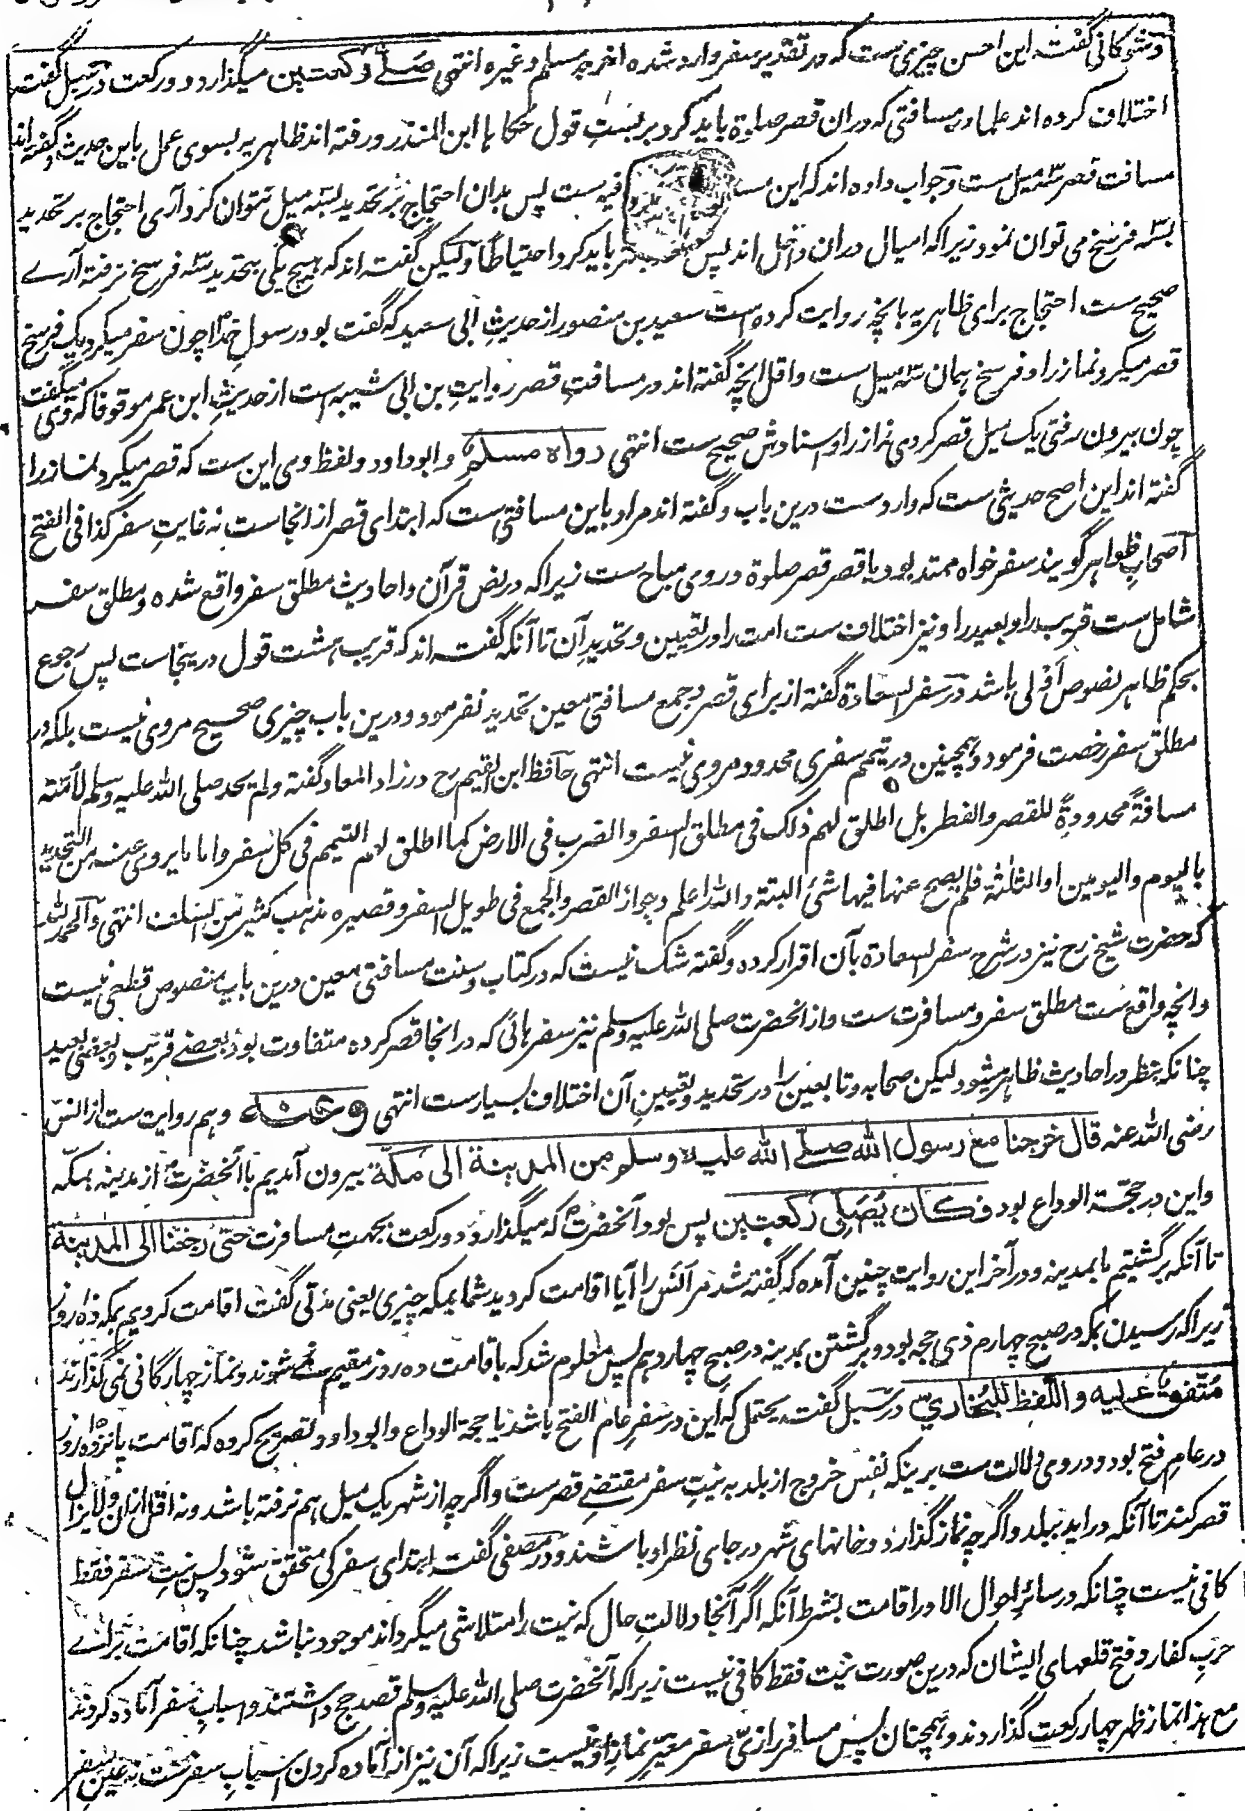 وشوکانی گفته این احسن چیزی ست که در تقدیر سفر وارد شده اخرجه مسلم وغیره انتهی صلے رکعتین میگذارد دو رکعت در سبل گفته
اختلاف کرده اند علما در مسافتی که دران قصر صلوة باید کرد بر بست قول حکاها ابن المنذر ورفته اند ظاهریه بسوی عمل باین حدیث وگفته اند
مسافت قصر سه میل ست وجواب داده اند که این مسا فیه ست پس بدان احتجاج بر تحدید بسه میل نتوان کرد آری احتجاج بر تحدید
بسه فرسخ می توان نمود زیرا که امیال دران داخل اند پس باید کرد احتیاطا ولیکن گفته اند که هیچ یکی بتحدید سه فرسخ نرفته آرے
صحیح ست احتجاج برای ظاهریه بانچه روایت کرده است سعید بن منصور از حدیث ابی سعید که گفت بود رسول خدا چون سفر میکرد یک فرسخ
قصر میکرد نماز را و فرسخ همان سه میل ست واقل انچه گفته اند در مسافت قصر روایت بن ابی شیبه است از حدیث ابن عمر موقوفا که وی میگفت
چون بیرون رفتی یک میل قصر کردی نماز را واسنادش صحیح ست انتهی رواه مسلم وابوداود ولفظ وی این ست که قصر میکرد نماز را
گفته اند این اصح حدیثی ست که وارد ست درین باب وگفته اند مراد باین مسافتی ست که ابتدای قصر ازانجاست نه غایت سفر کذا فی الفتح
اصحاب ظواهر گویند سفر خواه ممتد بود یا قصر قصر صلوة در وی مباح ست زیرا که در نص قرآن واحادیث مطلق سفر واقع شده ومطلق سفر
شامل ست قریب را وبعید را ونیز اختلاف ست امت را در تعیین وتحدید آن تا آنکه گفته اند که قریب هشت قول درینجاست پس رجوع
بحکم ظاهر نصوص اولی باشد در سفر السعادة گفته از برای قصر وجمع مسافتی معین تحدید نفرمود ودرین باب چیزی صحیح مروی نیست بلکه در
مطلق سفر رخصت فرمود وهمچنین در تیمم سفری محدود مروی نیست انتهی حافظ ابن القیم رح در زاد المعاد گفته ولم یحد صلی الله علیه وسلم لامته
مسافة محدودة للقصر والفطر بل اطلق لهم ذلک فی مطلق السفر والضرب فی الارض کما اطلق لهم التیمم فی کل سفر واما ما یروی عنه من التحدید
بالیوم والیومین او الثلثة فلم یصح عنها فیها شئ البتة والله اعلم وبجواز القصر والجمع فی طویل السفر وقصیره مذهب کثیر من السلف انتهی والحمد لله
که حضرت شیخ رح نیز در شرح سفر السعادة بآن اقرار کرده وگفته شک نیست که در کتاب وسنت مسافتی معین درین باب منصوص قطعی نیست
وانچه واقع ست مطلق سفر ومسافرت ست واز انحضرت صلی الله علیه وسلم نیز سفرهائی که در انجا قصر کرده متفاوت بود بعضے قریب وبعضی بعید
چنانکه بنظر در احادیث ظاهر میشود لیکن صحابه وتابعین را در تحدید وتعیین آن اختلاف بسیارست انتهی وعنه وهم روایت ست از انس
رضی الله عنه قال خرجنا مع رسول الله صلے الله علیه وسلم من المدینة الی مکة بیرون آمدیم با انحضرت از مدینه بمکه
واین در حجة الوداع بود فکان یصلی رکعتین پس بود آنحضرت که میگذارد دو رکعت بجهت مسافرت حتی رجعنا الی المدینة
تا آنکه برگشتیم ما بمدینه ودر آخر این روایت چنین آمده که گفته شد مر انس را آیا اقامت کردید شما بمکه چیزی یعنی مدتی گفت اقامت کردیم بمکه ده روز
زیرا که رسیدن بمکه در صبح چهارم ذی حجه بود وبرگشتن بمدینه در صبح چهاردهم پس معلوم شد که باقامت ده روز مقیم نمے شوند ونماز چهارگانی نمی گذارند
متفق علیه واللفظ للبخاری در سبل گفته یحتمل که این در سفر عام الفتح باشد یا حجة الوداع وابوداود تصریح کرده که اقامت پانزده روز
در عام فتح بود ودر وی دلالت ست برینکه نفس خروج از بلد به نیت سفر مقتضی قصرست واگرچه از شهر یک میل هم نرفته باشد ونه اقل ازان ولایزال
قصر کند تا آنکه در اید ببلد واگرچه نماز گذارد وخانهای شهر در جای نظر او باشند ودر مصفی گفته ابتدای سفر کی متحقق شود پس نیت سفر فقط
کافی نیست چنانکه در سائر احوال الا در اقامت بشرط آنکه اگر آنجا دلالت حال که نیت را متلاشی میگرداند موجود نباشد چنانکه اقامت برائے
حرب کفار وفتح قلعهای ایشان که درین صورت نیت فقط کافی نیست زیرا که آنحضرت صلی الله علیه وسلم قصد حج داشتند واسباب سفر آماده کردند
مع هذا نماز ظهر چهار رکعت گذاردند وهمچنان پس مسافر از زی سفر مغیر نماز او نیست زیرا که آن نیز از آماده کردن اسباب سفرست نه عین سفر